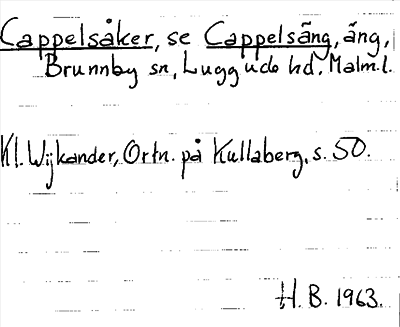 Cappelsåker, se Cappelsäng, äng,
Brunnby sn, Luggude hd, Malm.l.
Kl. Wijkander, Ortn. på Kullaberg, s. 50.
H. B. 1963.